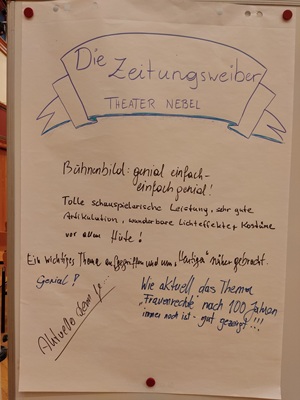 Die Zeitungsweiber
THEATER NEBEL
Bühnenbild: genial einfach-
einfach genial!
Tolle schauspielerische Leistung, sehr gute
Artikulation, wunderbare Lichteffekte + Kostüme
vor allem Hüte!
Ein wichtiges Thema aufgegriffen und uns näher gebracht.
Genial!
Wie aktuell das Thema
"Frauenrechte" nach 100 Jahren
immer noch ist - gut gezeigt!!!